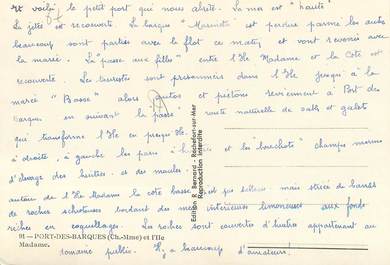 voilà le petit port qui nous abrite. La mer est "haute"
La jetée est recouverte. La barque " " est perdue parmi les autres
beaucoup sont parties avec le flot ce matin et vont revenir avec
la marée. La "passe aux filles" entre l'Ile Madame et la Côte est
recouverte. Les touristes sont prisonniers dans l'Ile jusqu'à la
marée "Basse" alors autos et piétons reviennent à Port des
Barques en suivant la "passe" route naturelle de sable et galets
qui transforme l'Ile en presqu'Ile
à droite, à gauche les parcs à et les "bouchots" champs marins
d'élevage des huîtres et des moules.
autour de l'Ile Madame la côte basse est peu sableuse mais striée de bancs
de roches schisteuses bordant des intérieures limoneuses aux fonds
riches en coquillages. Les roches sont couvertes d'huîtres appartenant au
domaine public. Il y a beaucoup d'amateurs.
91 — PORT-DES-BARQUES (Ch.-Mme) et l'Ile
Madame.
Edition R. Bernard - Rochefort-sur-Mer
Reproduction interdite